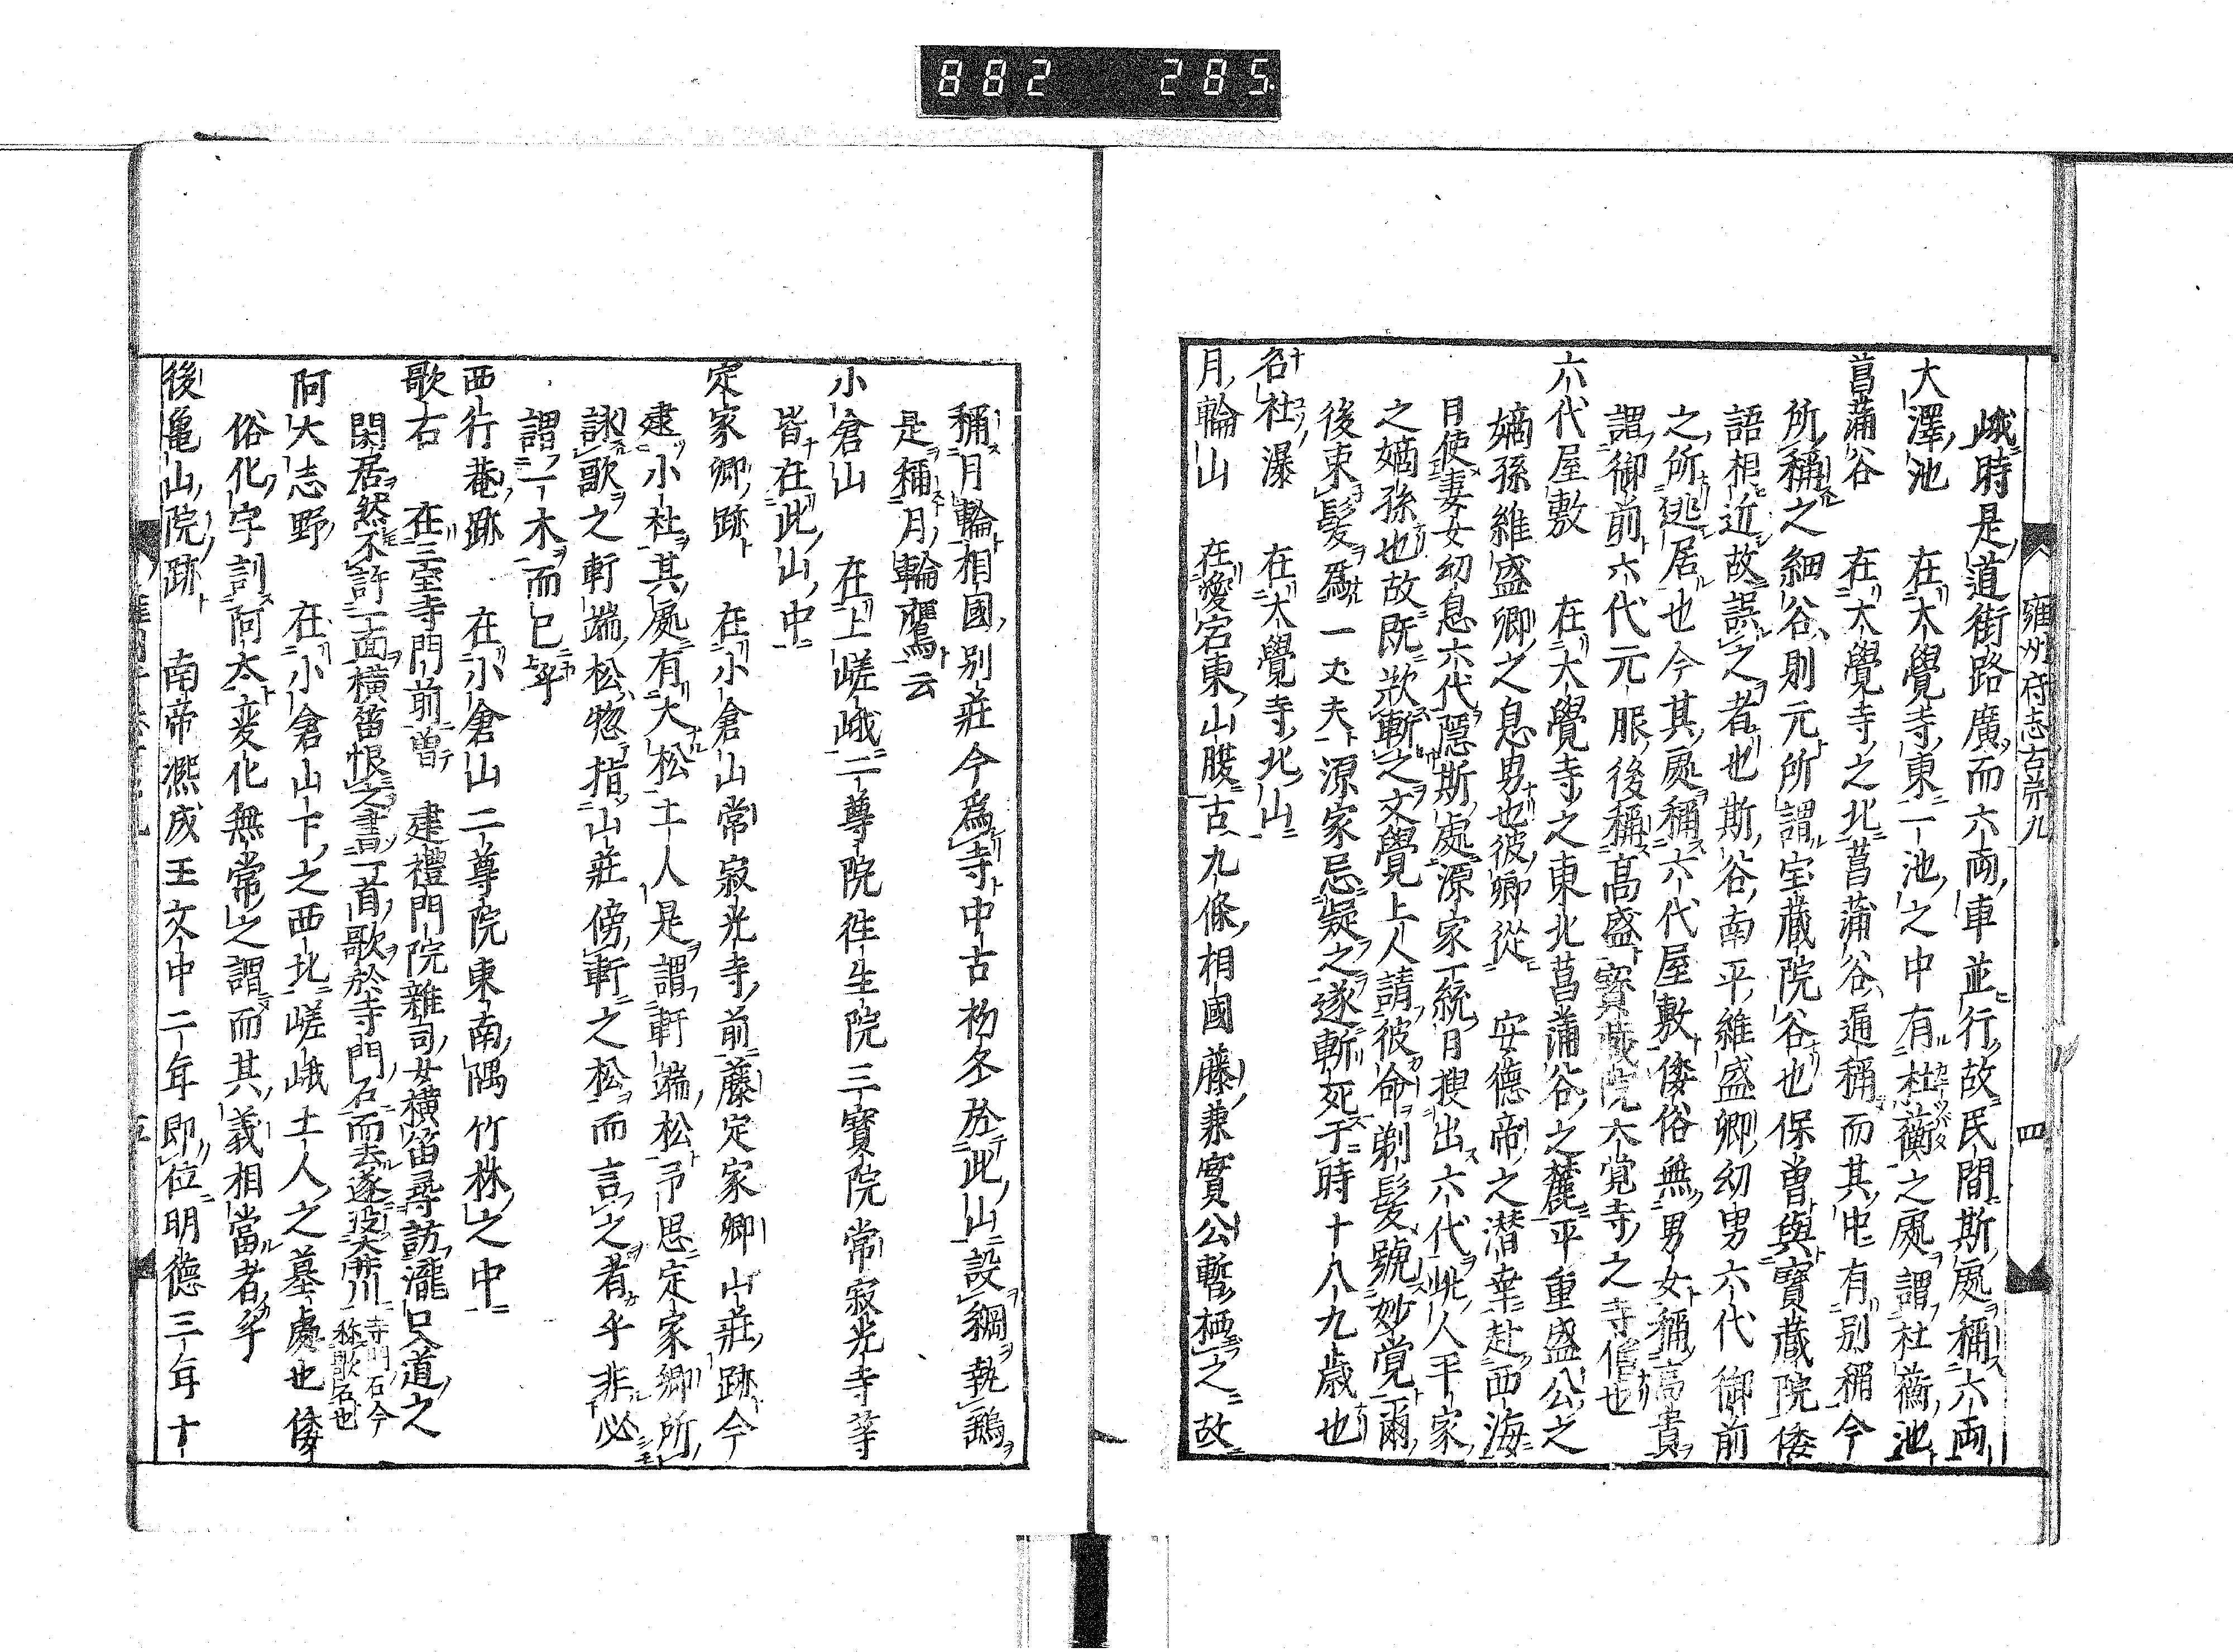 882 285
雍州府志古蹟九 四
峨時是道街路廣而六両車並行故民間斯處稱六両
大澤池 在大覺寺東一池之中有杜蘅之處謂杜蘅池
菖蒲谷 在大覺寺之北菖蒲谷遍稱而其中有別稱今
所稱之細谷則元所謂宝蔵院谷也保曽與寶藏院倭
語相近故誤之者也斯谷南平維盛卿幼男六代御前
之所逃居也今其處稱六代屋敷倭俗無男女稱高貴
謂御前六代元服後稱高盛寶蔵院大覚寺之寺僧也
六代屋敷 在大覺寺之東北菖蒲谷之麓平重盛公之
嫡孫維盛卿之息男也彼卿從 安德帝之潜幸赴西海
日使妻女幼息六代隱斯處源家一統日搜出六代此人平家
之嫡孫也故既欲斬之文覺上人請彼命剃髮號妙覚爾
後束髪為一丈夫源家忌疑之遂斬死于時十八九歳也
名社瀑 在大覺寺北山
月輪山 在愛宕東山腰古九條相國藤兼實公暫栖之故
稱月輪相國別莊今為寺中古秋冬於此山設綱執鵶
是稱月輪鷹云
小倉山 在上嵯峨二尊院徃生院三寶院常寂光寺等
皆在此山中
定家卿跡 在小倉山常寂光寺前藤定家卿山莊跡今
建小社其處有大松土人是謂軒端松弔思定家卿所
詠歌之軒端松惣指山莊傍軒之松而言之者乎非必
謂一木而已乎
西行菴跡 在小倉山二尊院東南隅竹林之中
歌右 在三宝寺門前曽 建禮門院雜司女横笛尋訪瀧口入道之
閑居然不許一面横笛恨之書一首歌於寺門石而去遂没大井川寺門石今称歌石也
阿大志野 在小倉山下之西北嵯峨土人之墓處也倭
俗化字訓阿太変化無常之謂而其義相當者乎
後亀山院跡 南帝熈成王文中二年即位明德三年十